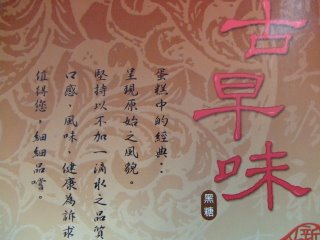 古早味
黑糖
蛋糕中的經典：
呈現原始之風貌。
堅持以不加一滴水之品質
口感、風味、健康為訴求
值得您，細細品嚐。